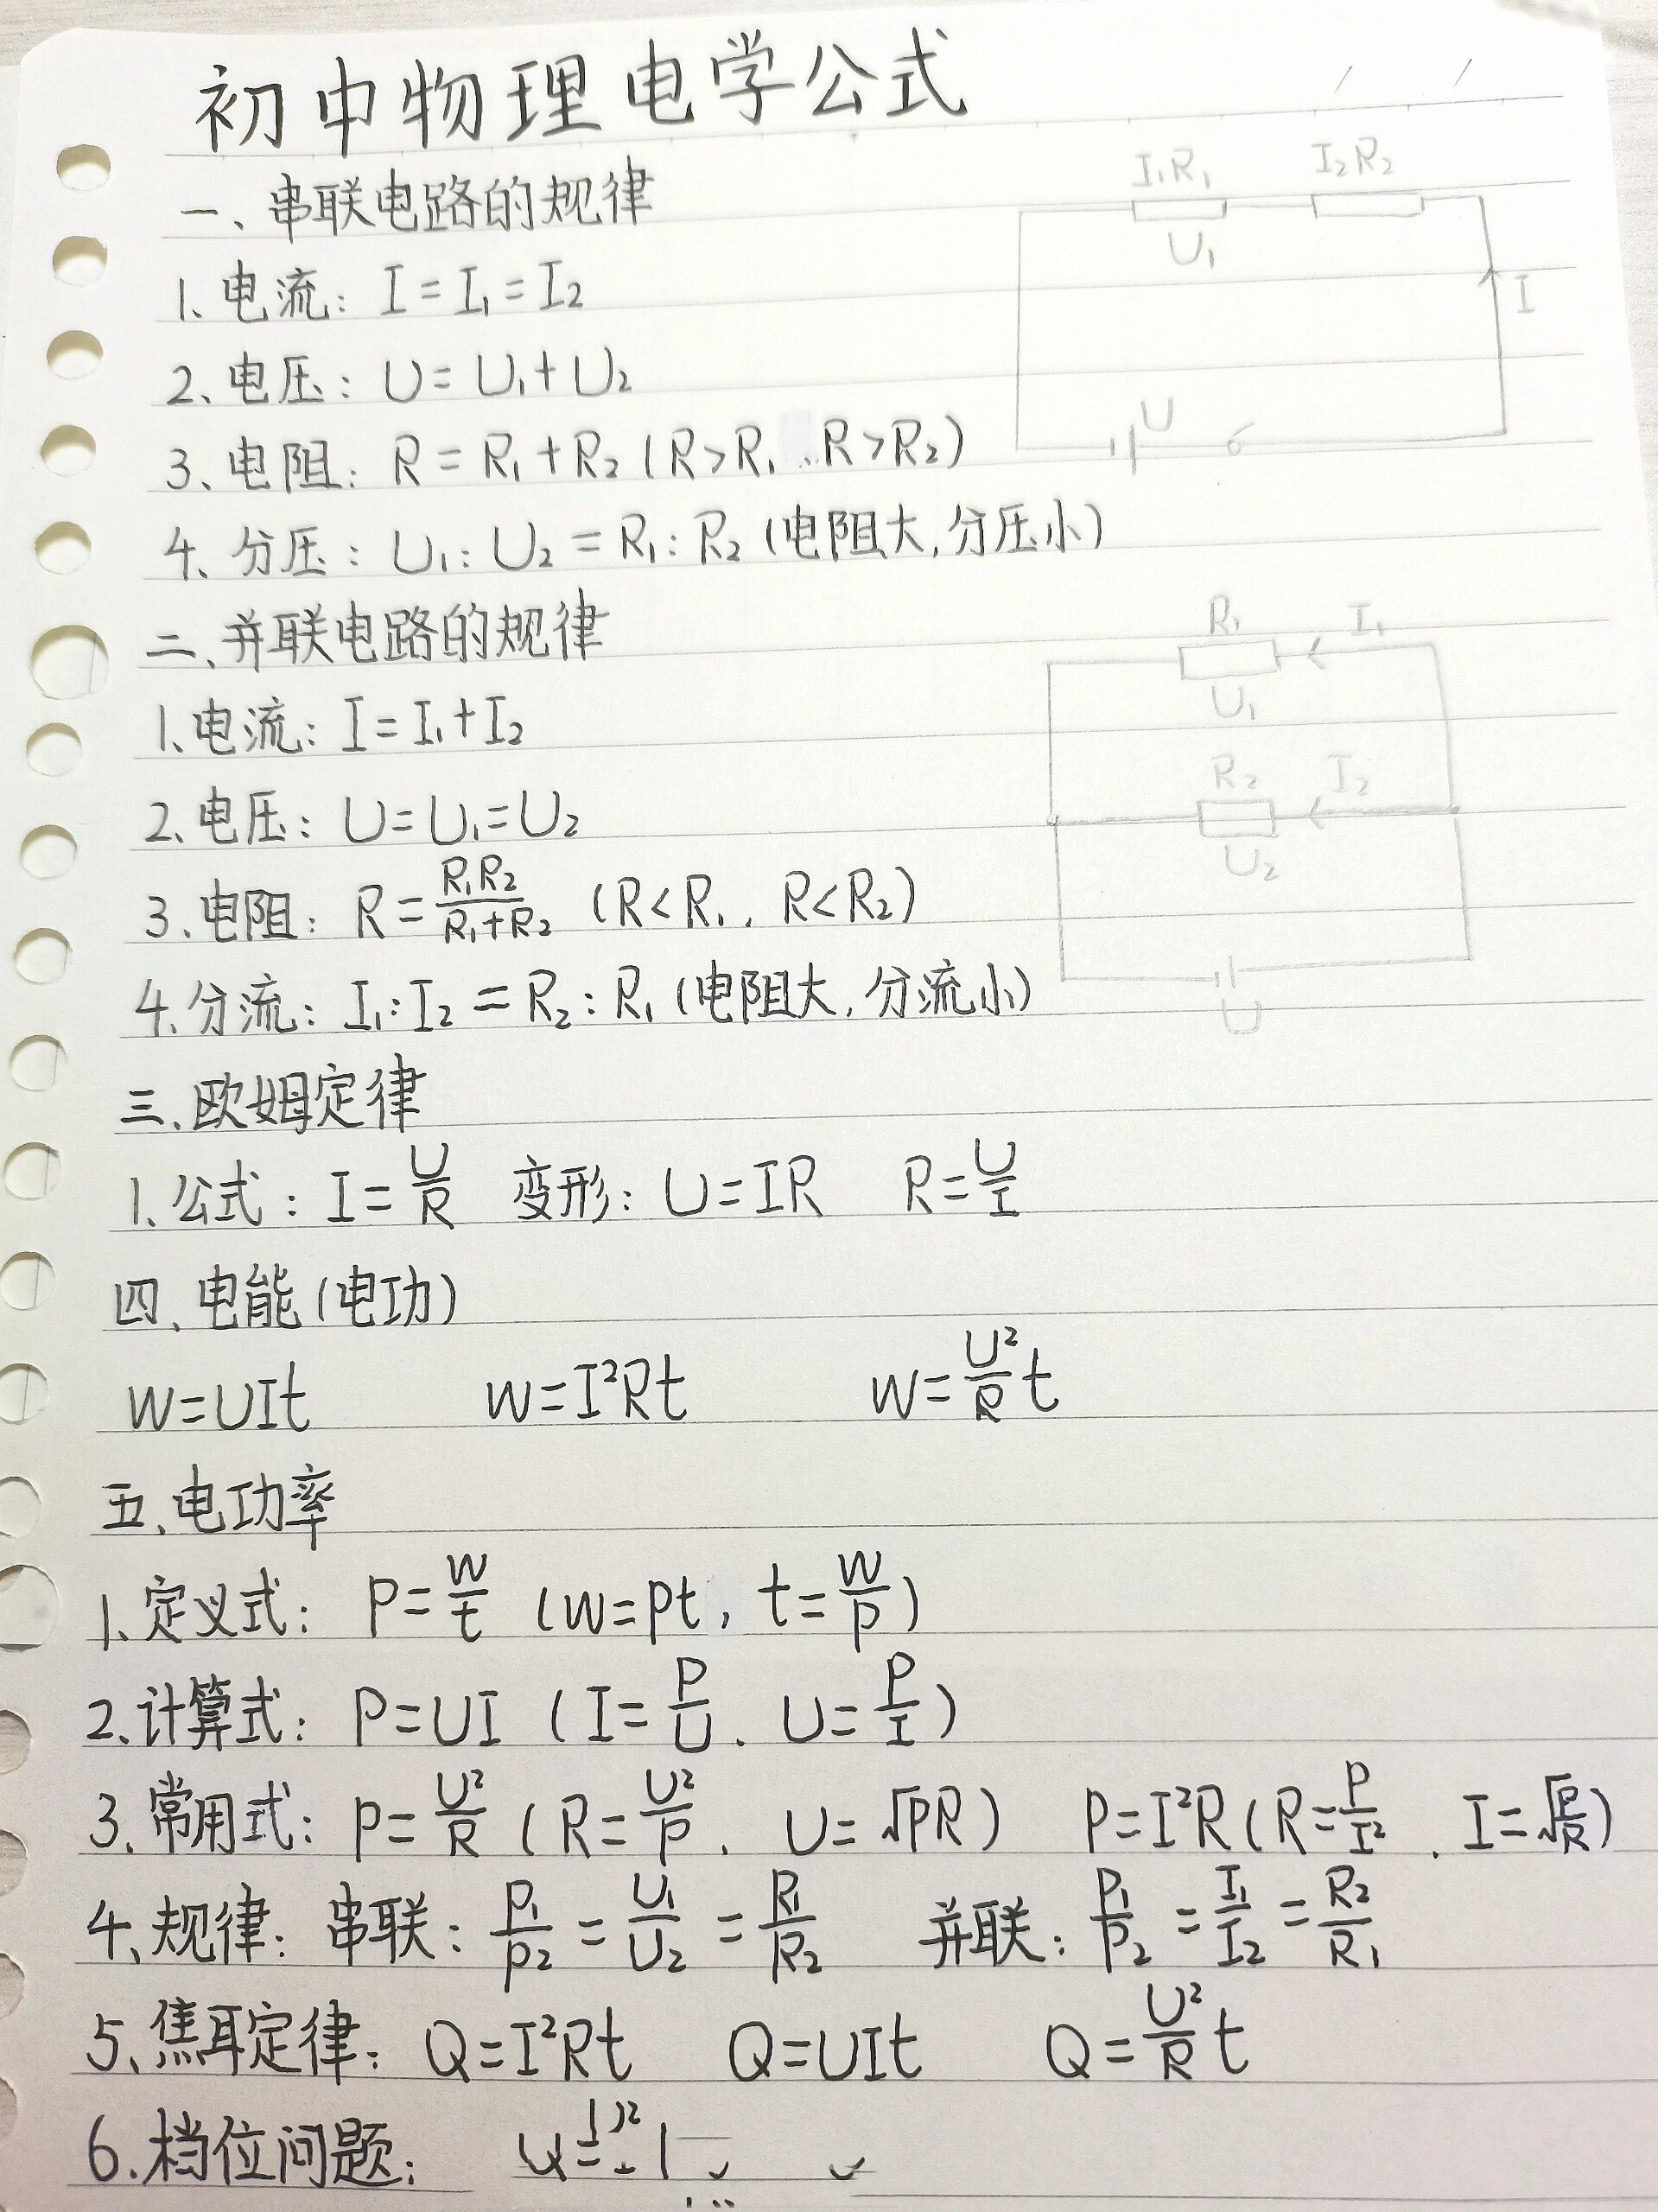 初中物理电学公式
一、串联电路的规律
I₁R₁ I₂R₂
U₁
1、电流：I=I₁=I₂
I
2、电压：U=U₁+U₂
U
3、电阻：R=R₁+R₂(R>R₁、R>R₂)
4、分压：U₁:U₂=R₁:R₂(电阻大,分压小)
二、并联电路的规律
R₁ I₁
U₁
1、电流：I=I₁+I₂
R₂ I₂
2、电压：U=U₁=U₂
U₂
3、电阻：R=R₁R₂/(R₁+R₂) (R<R₁, R<R₂)
4、分流：I₁:I₂=R₂:R₁(电阻大,分流小)
U
三、欧姆定律
1、公式：I=U/R 变形：U=IR R=U/I
四、电能(电功)
W=UIt W=I²Rt W=U²/R t
五、电功率
1、定义式：P=W/t (W=Pt, t=W/P)
2、计算式：P=UI (I=P/U、U=P/I)
3、常用式：P=U²/R (R=U²/P, U=√PR) P=I²R(R=P/I², I=√(P/R))
4、规律：串联：P₁/P₂=U₁/U₂=R₁/R₂ 并联：P₁/P₂=I₁/I₂=R₂/R₁
5、焦耳定律：Q=I²Rt Q=UIt Q=U²/R t
6、档位问题：